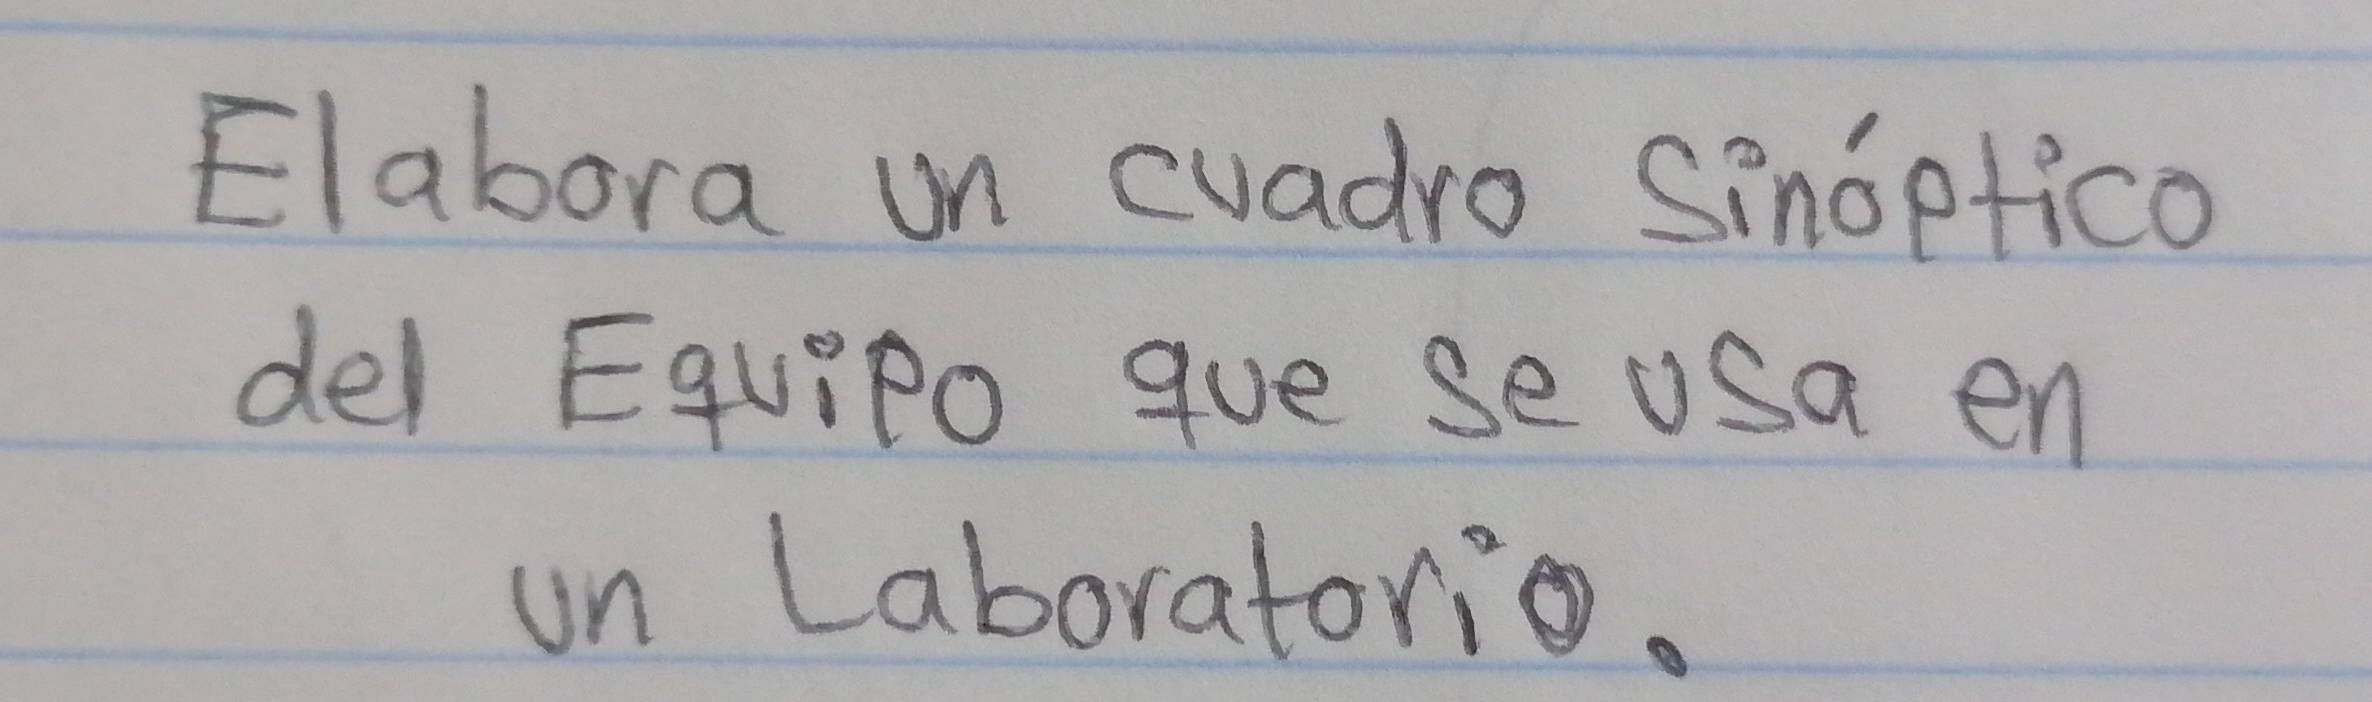 Elabora un cuadro Sinóptico
del Equipo que se usa en
un Laboratorio.